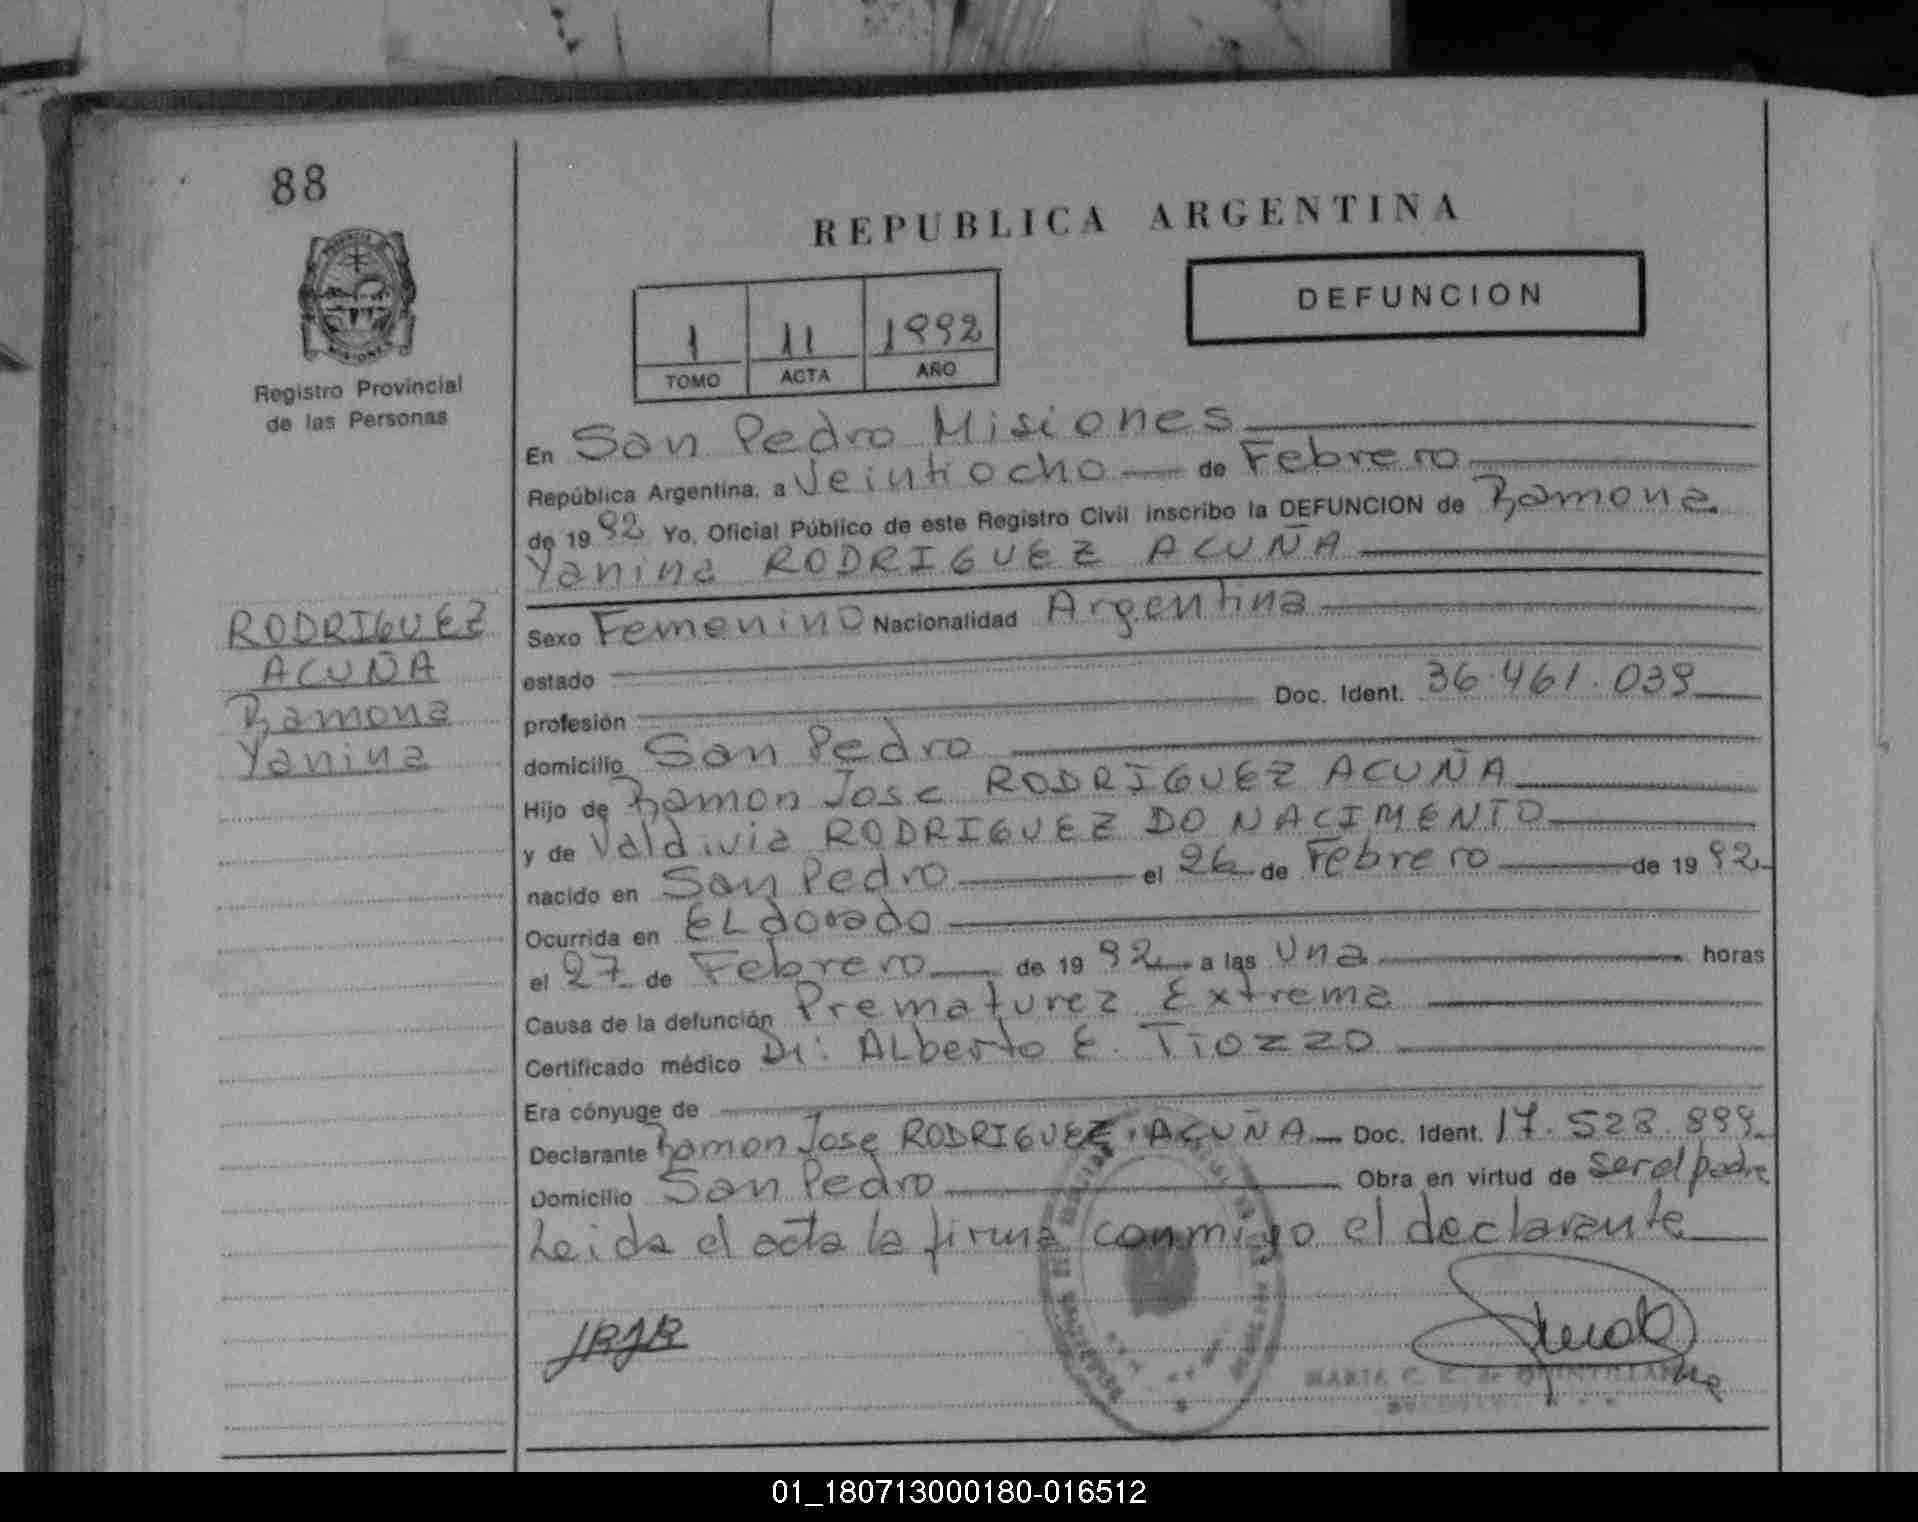 88
REPUBLICA ARGENTINA
DEFUNCION
1 11 1992
TOMO ACTA AÑO
Registro Provincial
de las Personas
En San Pedro Misiones
República Argentina, a Veintiocho de Febrero
de 1992 Yo, Oficial Público de este Registro Civil inscribo la DEFUNCION de Ramona
Yanina RODRIGUEZ ACUÑA
RODRIGUEZ
ACUÑA
Ramona
Yanina
Sexo Femenino Nacionalidad Argentina
estado
profesión Doc. Ident. 36.461.039
domicilio San Pedro
Hijo de Ramon Jose RODRIGUEZ ACUÑA
y de Valdivia RODRIGUEZ DO NACIMENTO
nacido en San Pedro el 26 de Febrero de 1992
Ocurrida en ELdorado
el 27 de Febrero de 1992 a las Una horas
Causa de la defunción Prematurez Extrema
Certificado médico Dr: ALberto E. Tiozzo
Era cónyuge de
Declarante Ramon Jose RODRIGUEZ ACUÑA Doc. Ident. 17.528.899
Domicilio San Pedro Obra en virtud de ser el padre
Leida el acta la firma conmigo el declarante
JRJR
MARIA C. R. de
01_180713000180-016512